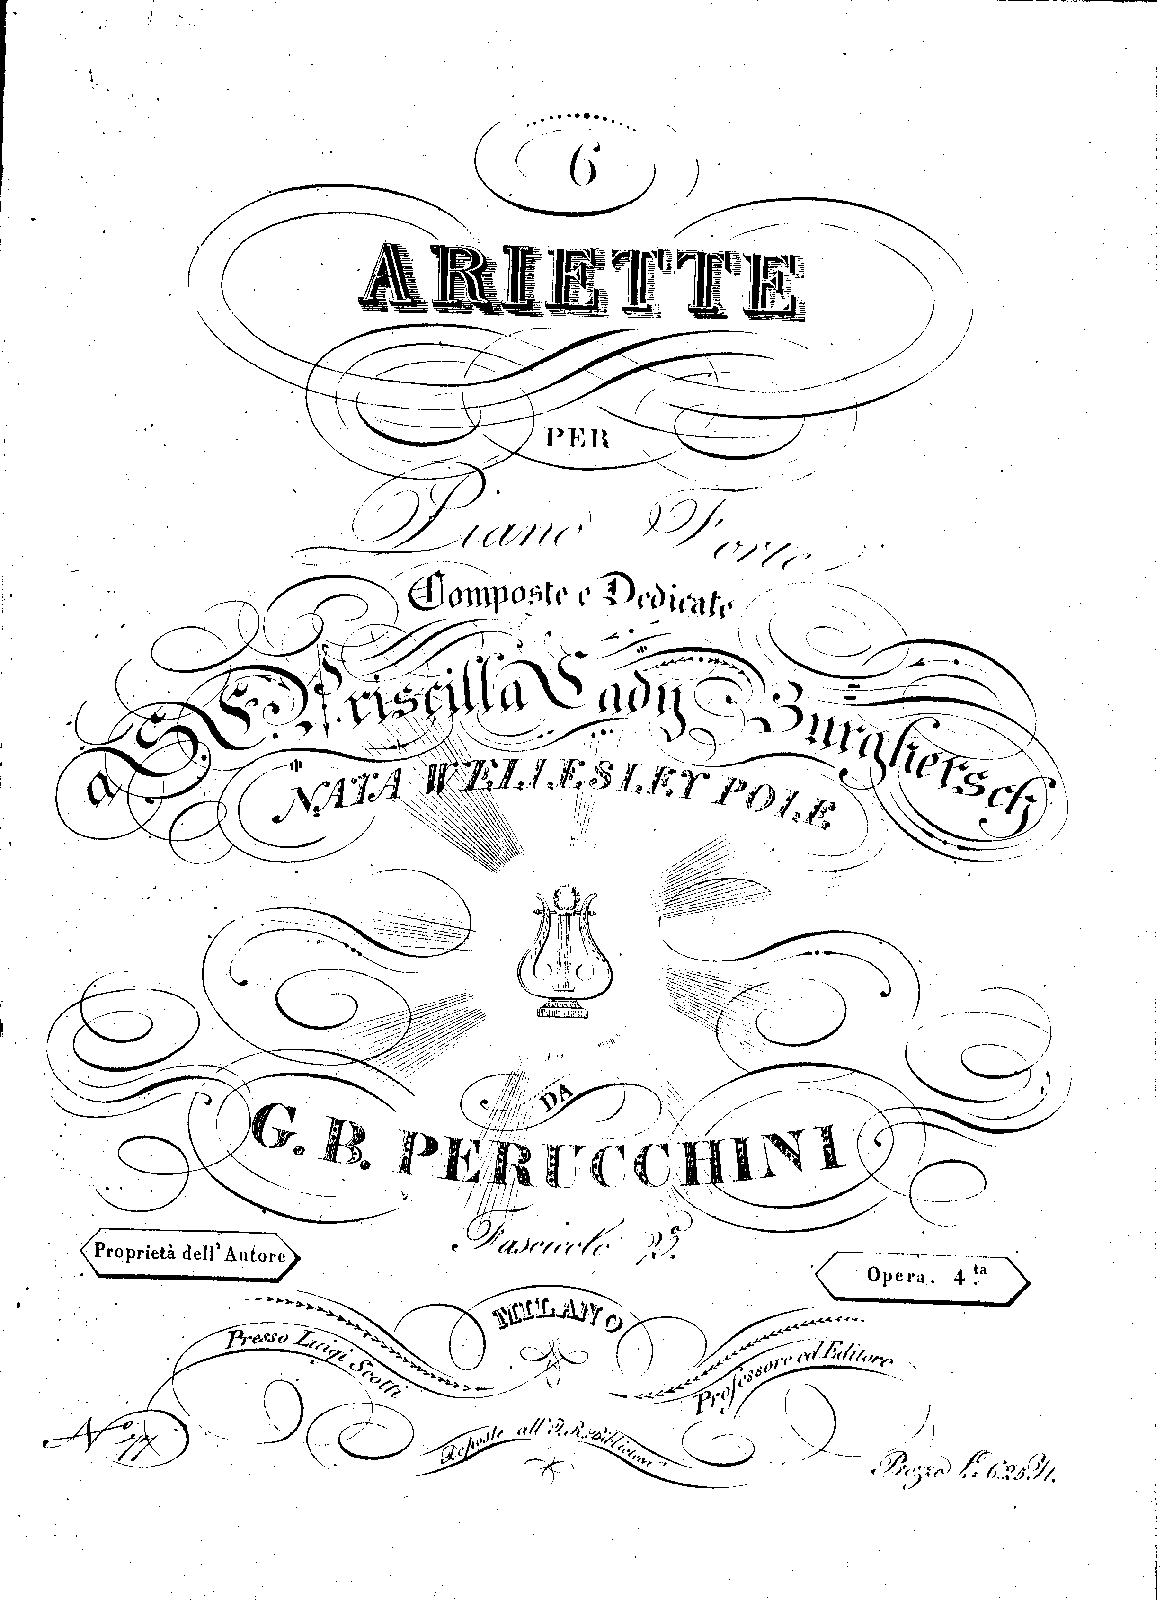 6
ARIETTE
PER
Piano Forte
Composte e Dedicate
a S. E. Priscilla Lady Burghersch
NATA WELLESLEY POLE
DA
G. B. PERUCCHINI
Fascicolo 2º.
Proprietà dell' Autore
Opera. 4.ta
MILANO
Presso Luigi Scotti
Professore ed Editore
all' I. R.
Nº
Prezzo